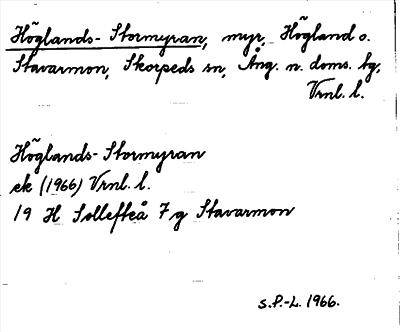 Höglands-Stormyran, myr, Högland o.
Stavarmon, Skorpeds sn, Ång. n. doms. bg,
Vrnl. l.
Höglands-Stormyran
ek (1966) Vrnl. l.
19 H Sollefteå 7 g Stavarmon
S.P.-L. 1966.